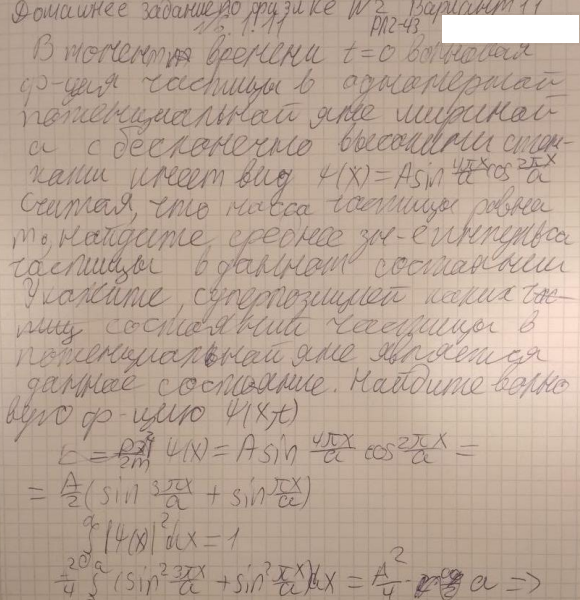 Домашнее задание по физике №2 Вариант 11
РЛ2-43
В момент времени t=0 волновая
ф-ция частицы в одномерной
потенциальной яме шириной
a с бесконечно высокими стен-
ками имеет вид Ψ(x)=Asin 4πx/a cos 2πx/a
Считая, что масса частицы равна
m₀, найдите среднее зн-е импульса
частицы в данном состоянии
Укажите, суперпозицией каких
состояний частицы в
потенциальной яме является
данное состояние. Найдите волно
вую ф-цию Ψ(x,t)
Ψ(x) = A sin 4πx/a cos 2πx/a =
= A/2 (sin 3πx/a + sin πx/a)
∫₀ᵃ |Ψ(x)|² dx = 1
∫₀ᵃ (sin² 3πx/a + sin² πx/a) dx = A²/4 a =>